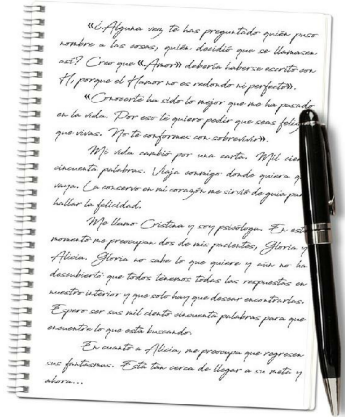 «¿Alguna vez te has preguntado quién puso
nombre a las cosas, quién decidió que se llamasen
así? Creo que «Amor» debería haberse escrito con
H, porque el Hamor no es redondo ni perfecto».
«Conocerte ha sido lo mejor que me ha pasado
en la vida. Por eso te quiero pedir que seas feliz
que vivas. No te conformes con sobrevivir».
Mi vida cambió por una carta. Mil cien
cincuenta palabras. Viaja conmigo donde quiera q
vaya. La conservo en mi corazón me sirvió de guía par
hallar la felicidad.
Me llamo Cristina y soy psicóloga. En est
momento me preocupan dos de mis pacientes, Gloria y
Alicia. Gloria no sabe lo que quiere y aún no ha
descubierto que todos tenemos todas las respuestas en
nuestro interior y que solo hay que desear encontrarlas.
Espero ser sus mil ciento cincuenta palabras para que
encuentre lo que está buscando.
En cuanto a Alicia, me preocupa que regresen
sus fantasmas. Está tan cerca de llegar a su meta y
ahora...